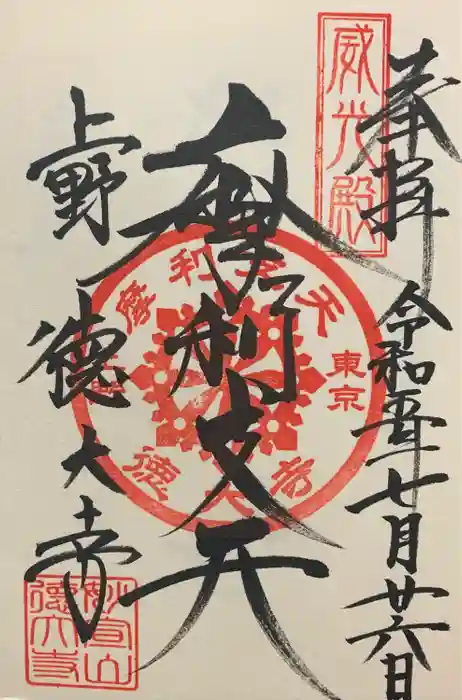 奉拝
令和五年七月廿六日
威光殿
摩利支天
摩利支天
東京
上野
徳大寺
上野徳大寺
妙宣山
徳大寺